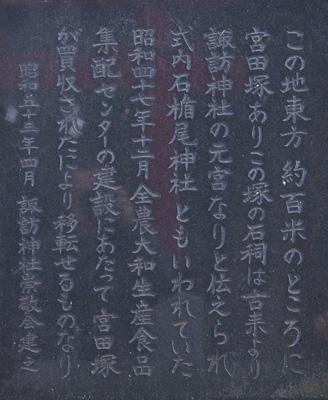 この地東方 約百米のところに
宮田塚ありこの塚の石祠は古来より
諏訪神社の元宮なりと伝えられ
式内石楯尾神社ともいわれていた
昭和四十七年十一月全農大和生産食品
集配センターの建設にあたって宮田塚
が買収されたにより移転せるものなり
昭和五十三年四月 諏訪神社崇敬会建之